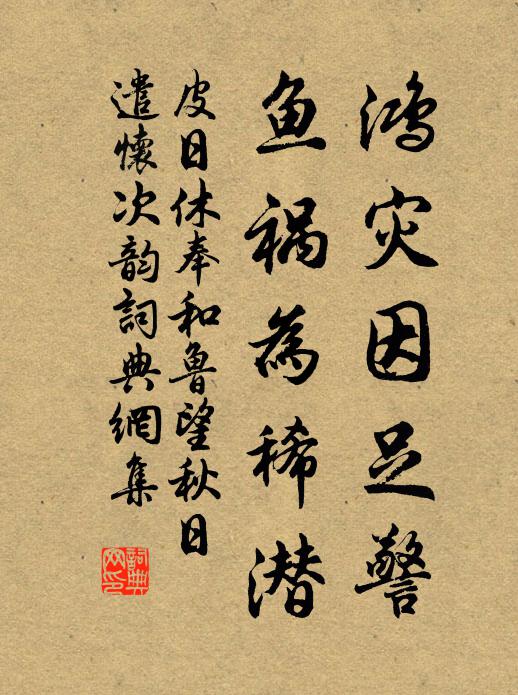 鸿灾因足警
鱼祸為稀潜
皮日休奉和鲁望秋日
遣懷次韵詞典網集
詞典网印